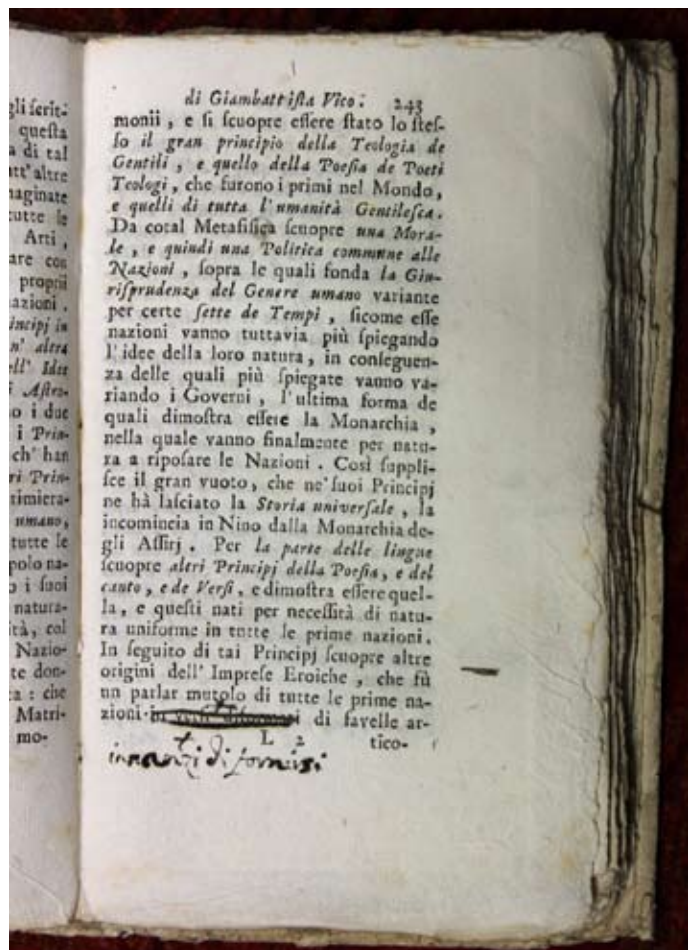 gli ſcrit-
queſta
a di tal
tt' altre
maginate
tutte le
Arti,
are con
proprii
nazioni.
incipj in
n' altra
ell' Idee
i Aſtro-
o i due
i Prin-
ch' han
ri Prin-
timiera-
umano,
tutte le
polo na-
o i ſuoi
natura-
ità, col
Nazio-
te don-
ta: che
Matri-
mo-
di Giambattiſta Vico. 243
monii, e ſi ſcuopre eſſere ſtato lo ſteſ-
ſo il gran principio della Teologia de
Gentili, e quello della Poeſia de Poeti
Teologi, che furono i primi nel Mondo,
e quelli di tutta l'umanità Gentileſca.
Da cotal Metafiſica ſcuopre una Mora-
le, e quindi una Politica commune alle
Nazioni, ſopra le quali fonda la Giu-
riſprudenza del Genere umano variante
per certe ſette de Tempi, ſicome eſſe
nazioni vanno tuttavia più ſpiegando
l'idee della loro natura, in conſeguen-
za delle quali più ſpiegate vanno va-
riando i Governi, l'ultima forma de
quali dimoſtra eſſere la Monarchia,
nella quale vanno finalmente per natu-
ra a ripoſare le Nazioni. Così ſuppli-
ſce il gran vuoto, che ne'ſuoi Principj
ne hà laſciato la Storia univerſale, la
incomincia in Nino dalla Monarchia de-
gli Aſſirj. Per la parte delle lingue
ſcuopre altri Principj della Poeſia, e del
canto, e de Verſi, e dimoſtra eſſere quel-
la, e queſti nati per neceſſità di natu-
ra uniforme in tutte le prime nazioni.
In ſeguito di tai Principj ſcuopre altre
origini dell' Impreſe Eroiche, che fù
un parlar mutolo di tutte le prime na-
zioni di favelle ar-
L 2 tico-
innantzi di fornirsi